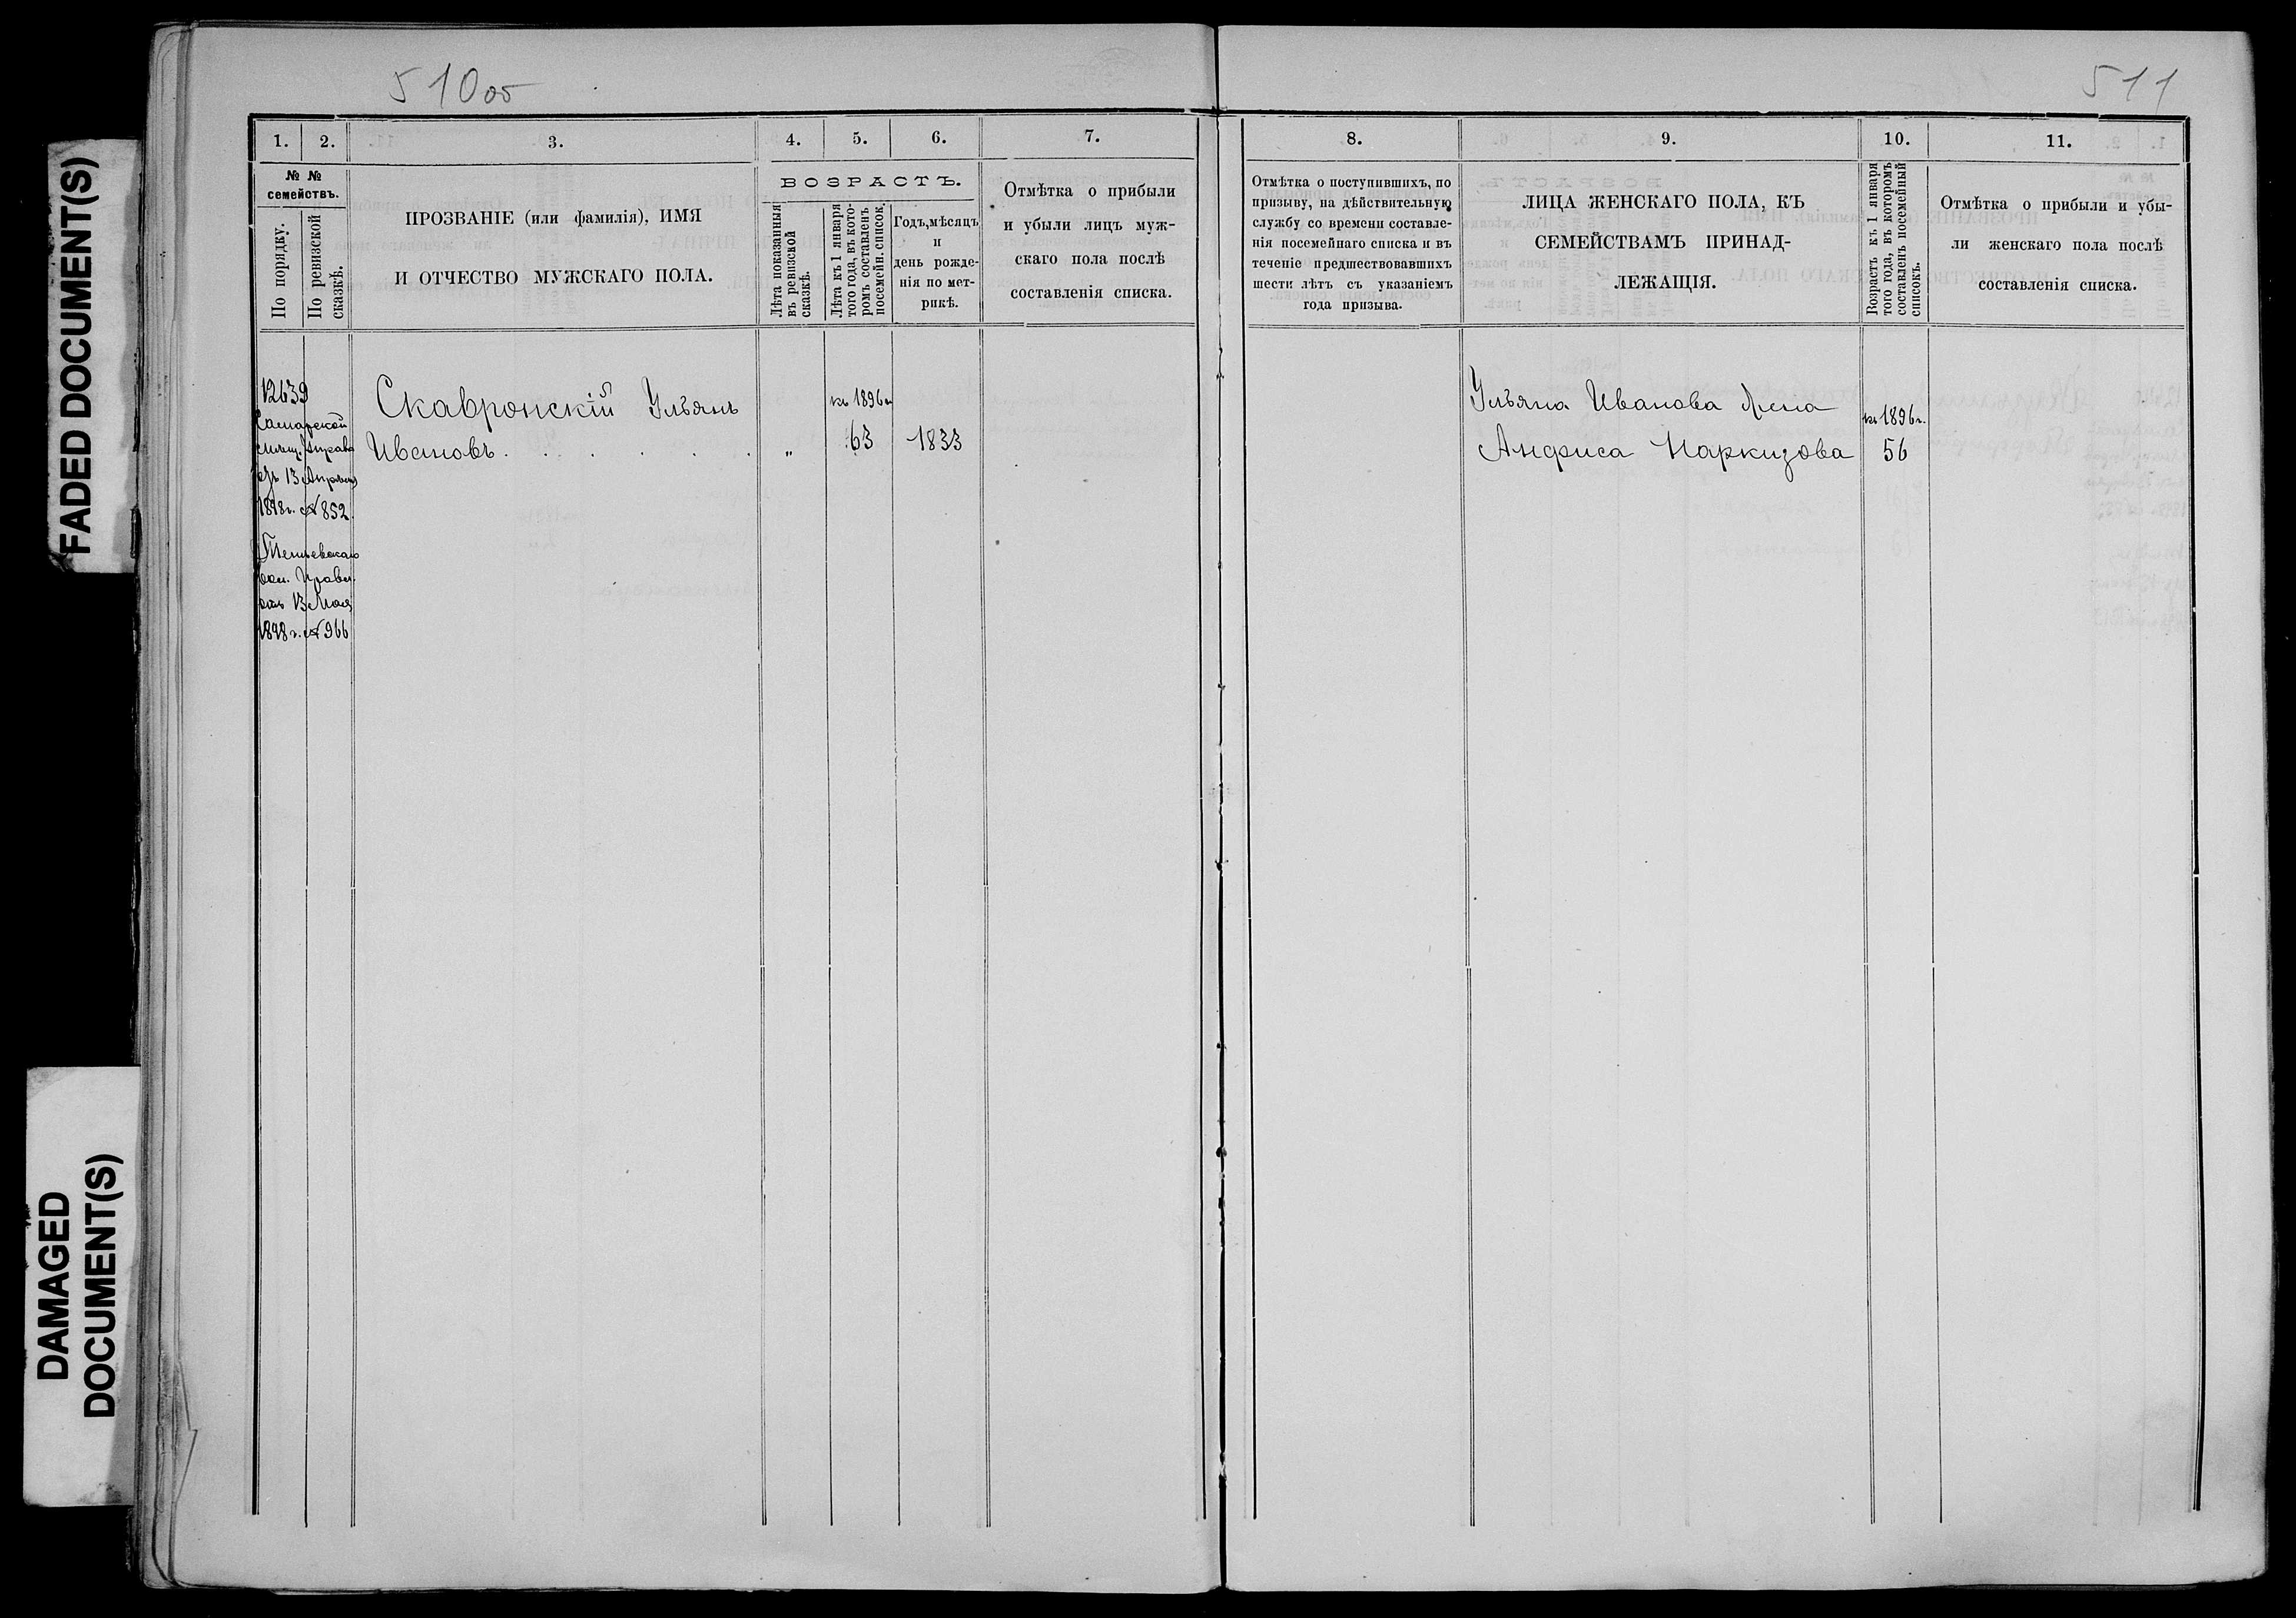 FADED DOCUMENT(S)
DAMAGED
DOCUMENT(S)
510об
1. 2. 3. 4. 5. 6. 7.
№ №
семействъ.
По порядку.
По ревизской
сказкѣ.
ПРОЗВАНІЕ (или фамилія), ИМЯ
И ОТЧЕСТВО МУЖСКАГО ПОЛА.
ВОЗРАСТЪ.
Лѣта показанныя
въ ревизской
сказкѣ.
Лѣта къ 1 января
того года, въ кото-
ромъ составленъ
посемейн. список.
Годъ, мѣсяцъ
и
день рожде-
нія по мет-
рикѣ.
Отмѣтка о прибыли
и убыли лицъ муж-
скаго пола послѣ
составленія списка.
12639
Самарской
мѣщ. Управа
отъ 13 Апрѣля
1898 г. № 852.
отъ 13 Мая
1898 г. № 966
Скавронскій Ульянъ
Ивановъ . . . . . .
„
къ 1896 г.
63
1833
511
8. 9. 10. 11.
Отмѣтка о поступившихъ, по
призыву, на дѣйствительную
службу со времени составле-
нія посемейнаго списка и въ
теченіе предшествовавшихъ
шести лѣтъ съ указаніемъ
года призыва.
ЛИЦА ЖЕНСКАГО ПОЛА, КЪ
СЕМЕЙСТВАМЪ ПРИНАД-
ЛЕЖАЩІЯ.
Возрастъ къ 1 января
того года, въ которомъ
составленъ посемейный
списокъ.
Отмѣтка о прибыли и убы-
ли женскаго пола послѣ
составленія списка.
Ульяна Иванова жена
Анфиса Наркизова
къ 1896 г.
56